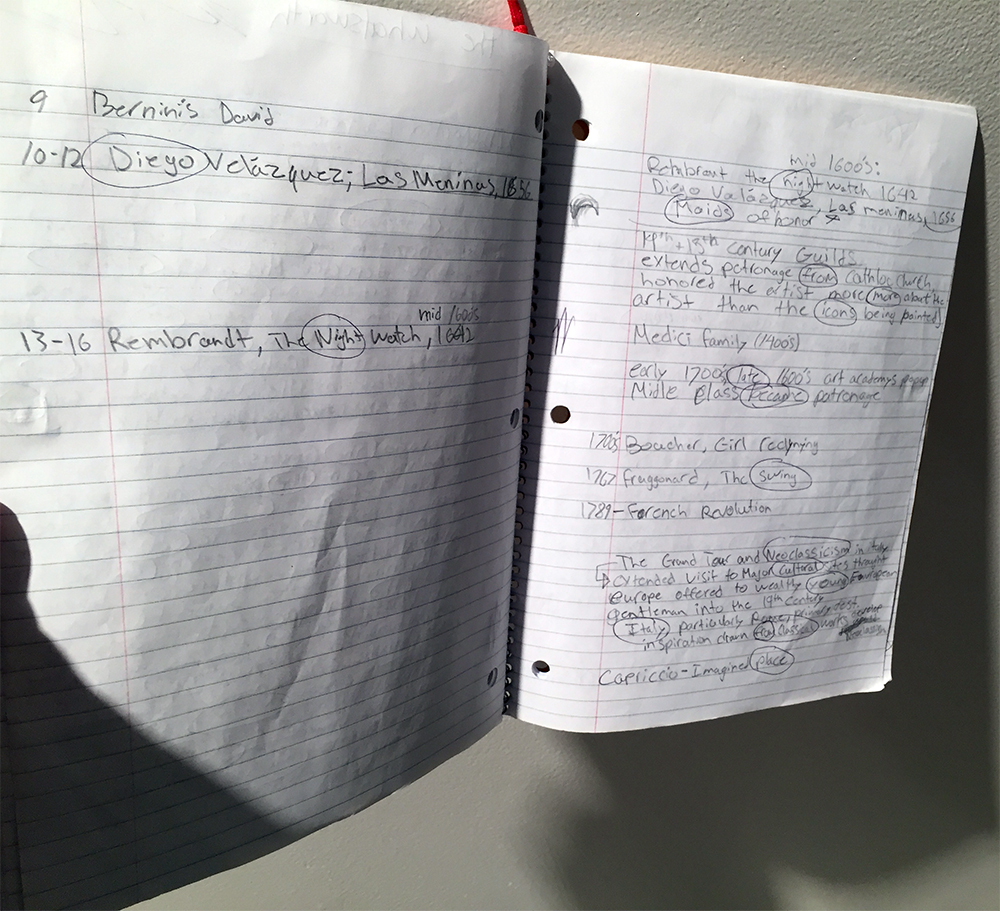 the whatsworth
9 Bernini's David
10-12 Diego Velázquez; Las Meninas, 1656
mid 1600's
13-16 Rembrandt, The Night Watch, 1642
mid 1600's:
Rembrant the night watch 1642
Diego Valázquez, Las meninas, 1656
Maids of honor
century Guilds
extends patronage from church,
honored the artist more (more about the
artist than the icons being painted)
Medici family (1400's)
early 1700's late 1600's art academys
Midle Class patronage
1700's Boucher, Girl
1767 Fraggonard, The Swing
1789- Forench Revolution
The Grand Tour and Neoclassicism in
extended visit to Major cultural sites
europe offered to wealthy young European
gentleman into the 19th century
Italy, particularly Rome,
inspiration drawn classical works
Capriccio - Imagined place